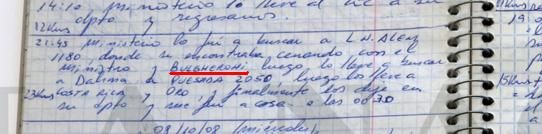 14:10 Ministerio lo llevé al Lic a su
dpto y regresamos.
12Kms
21:45 Ministerio lo fui a buscar a L.N. Alem
1180 donde se encontraba cenando con el
Ministro BULGHERONI luego lo llevé a buscar
a Datma a QUESADA 2050 luego los llevé a
23Kms COSTA RICA y ORO y finalmente los dejé en
su dpto y me fui a casa a las 00:30
09/10/08 (miércoles)
19:0
15Kms